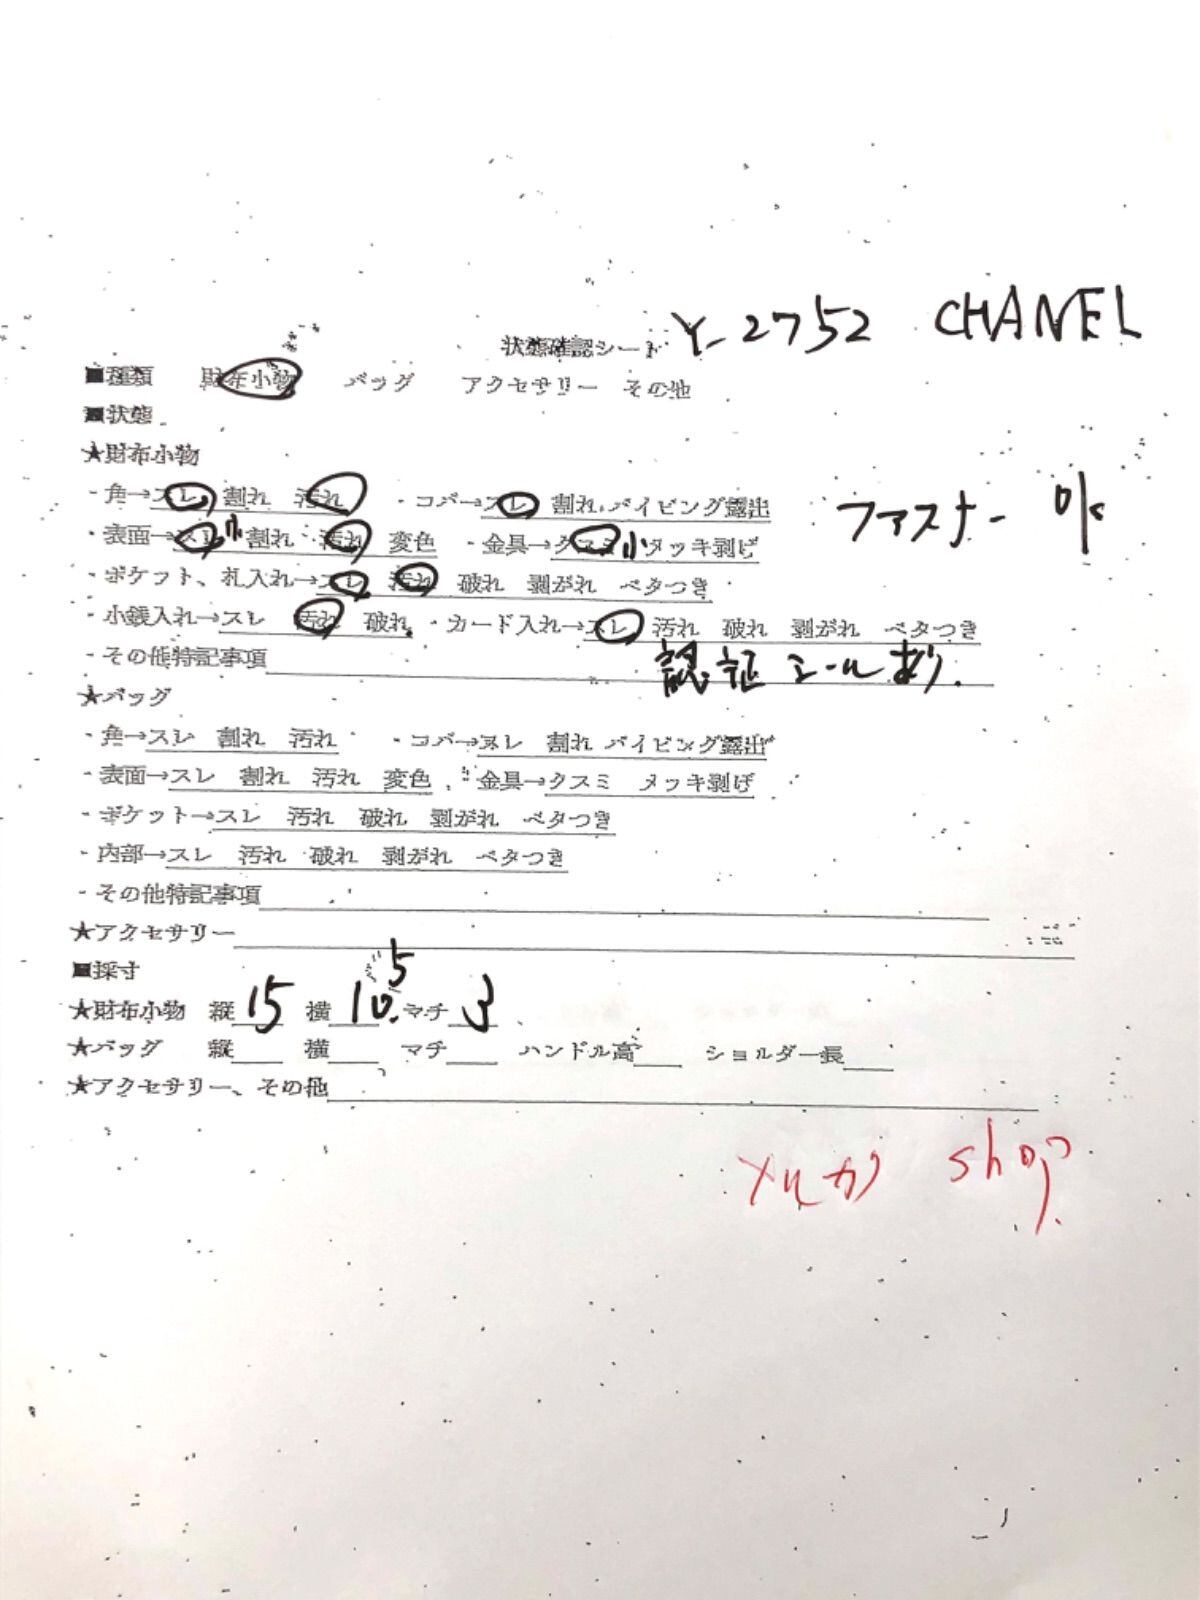 Y-2752 CHANEL
状態確認シート
■種類 財布小物 バッグ アクセサリー その他
■状態
★財布小物
・角→スレ 割れ 汚れ ・コバ→スレ 割れ パイピング露出
ファスナー ok
・表面→スレ小 割れ 汚れ 変色 ・金具→クスミ小 メッキ剥げ
・ポケット、札入れ→スレ 汚れ 破れ 剥がれ ベタつき
・小銭入れ→スレ 汚れ 破れ ・カード入れ→スレ 汚れ 破れ 剥がれ ベタつき
・その他特記事項 認証シールあり.
★バッグ
・角→スレ 割れ 汚れ ・コバ→スレ 割れ パイピング露出
・表面→スレ 割れ 汚れ 変色 ・金具→クスミ メッキ剥げ
・ポケット→スレ 汚れ 破れ 剥がれ ベタつき
・内部→スレ 汚れ 破れ 剥がれ ベタつき
・その他特記事項
★アクセサリー
■採寸
★財布小物 縦 15 横 10.5 マチ 3
★バッグ 縦 横 マチ ハンドル高 ショルダー長
★アクセサリー、その他
メルカリ shop